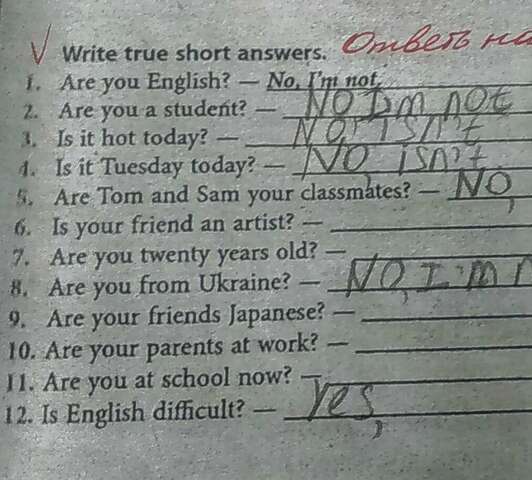 √ Write true short answers. Ответь на
1. Are you English? — No, I'm not.
2. Are you a student? — NO I'm not
3. Is it hot today? — NO, isn't
4. Is it Tuesday today? — NO, isn't
5. Are Tom and Sam your classmates? — NO,
6. Is your friend an artist? —
7. Are you twenty years old? —
8. Are you from Ukraine? — NO, I'm
9. Are your friends Japanese? —
10. Are your parents at work? —
11. Are you at school now? —
12. Is English difficult? — Yes,